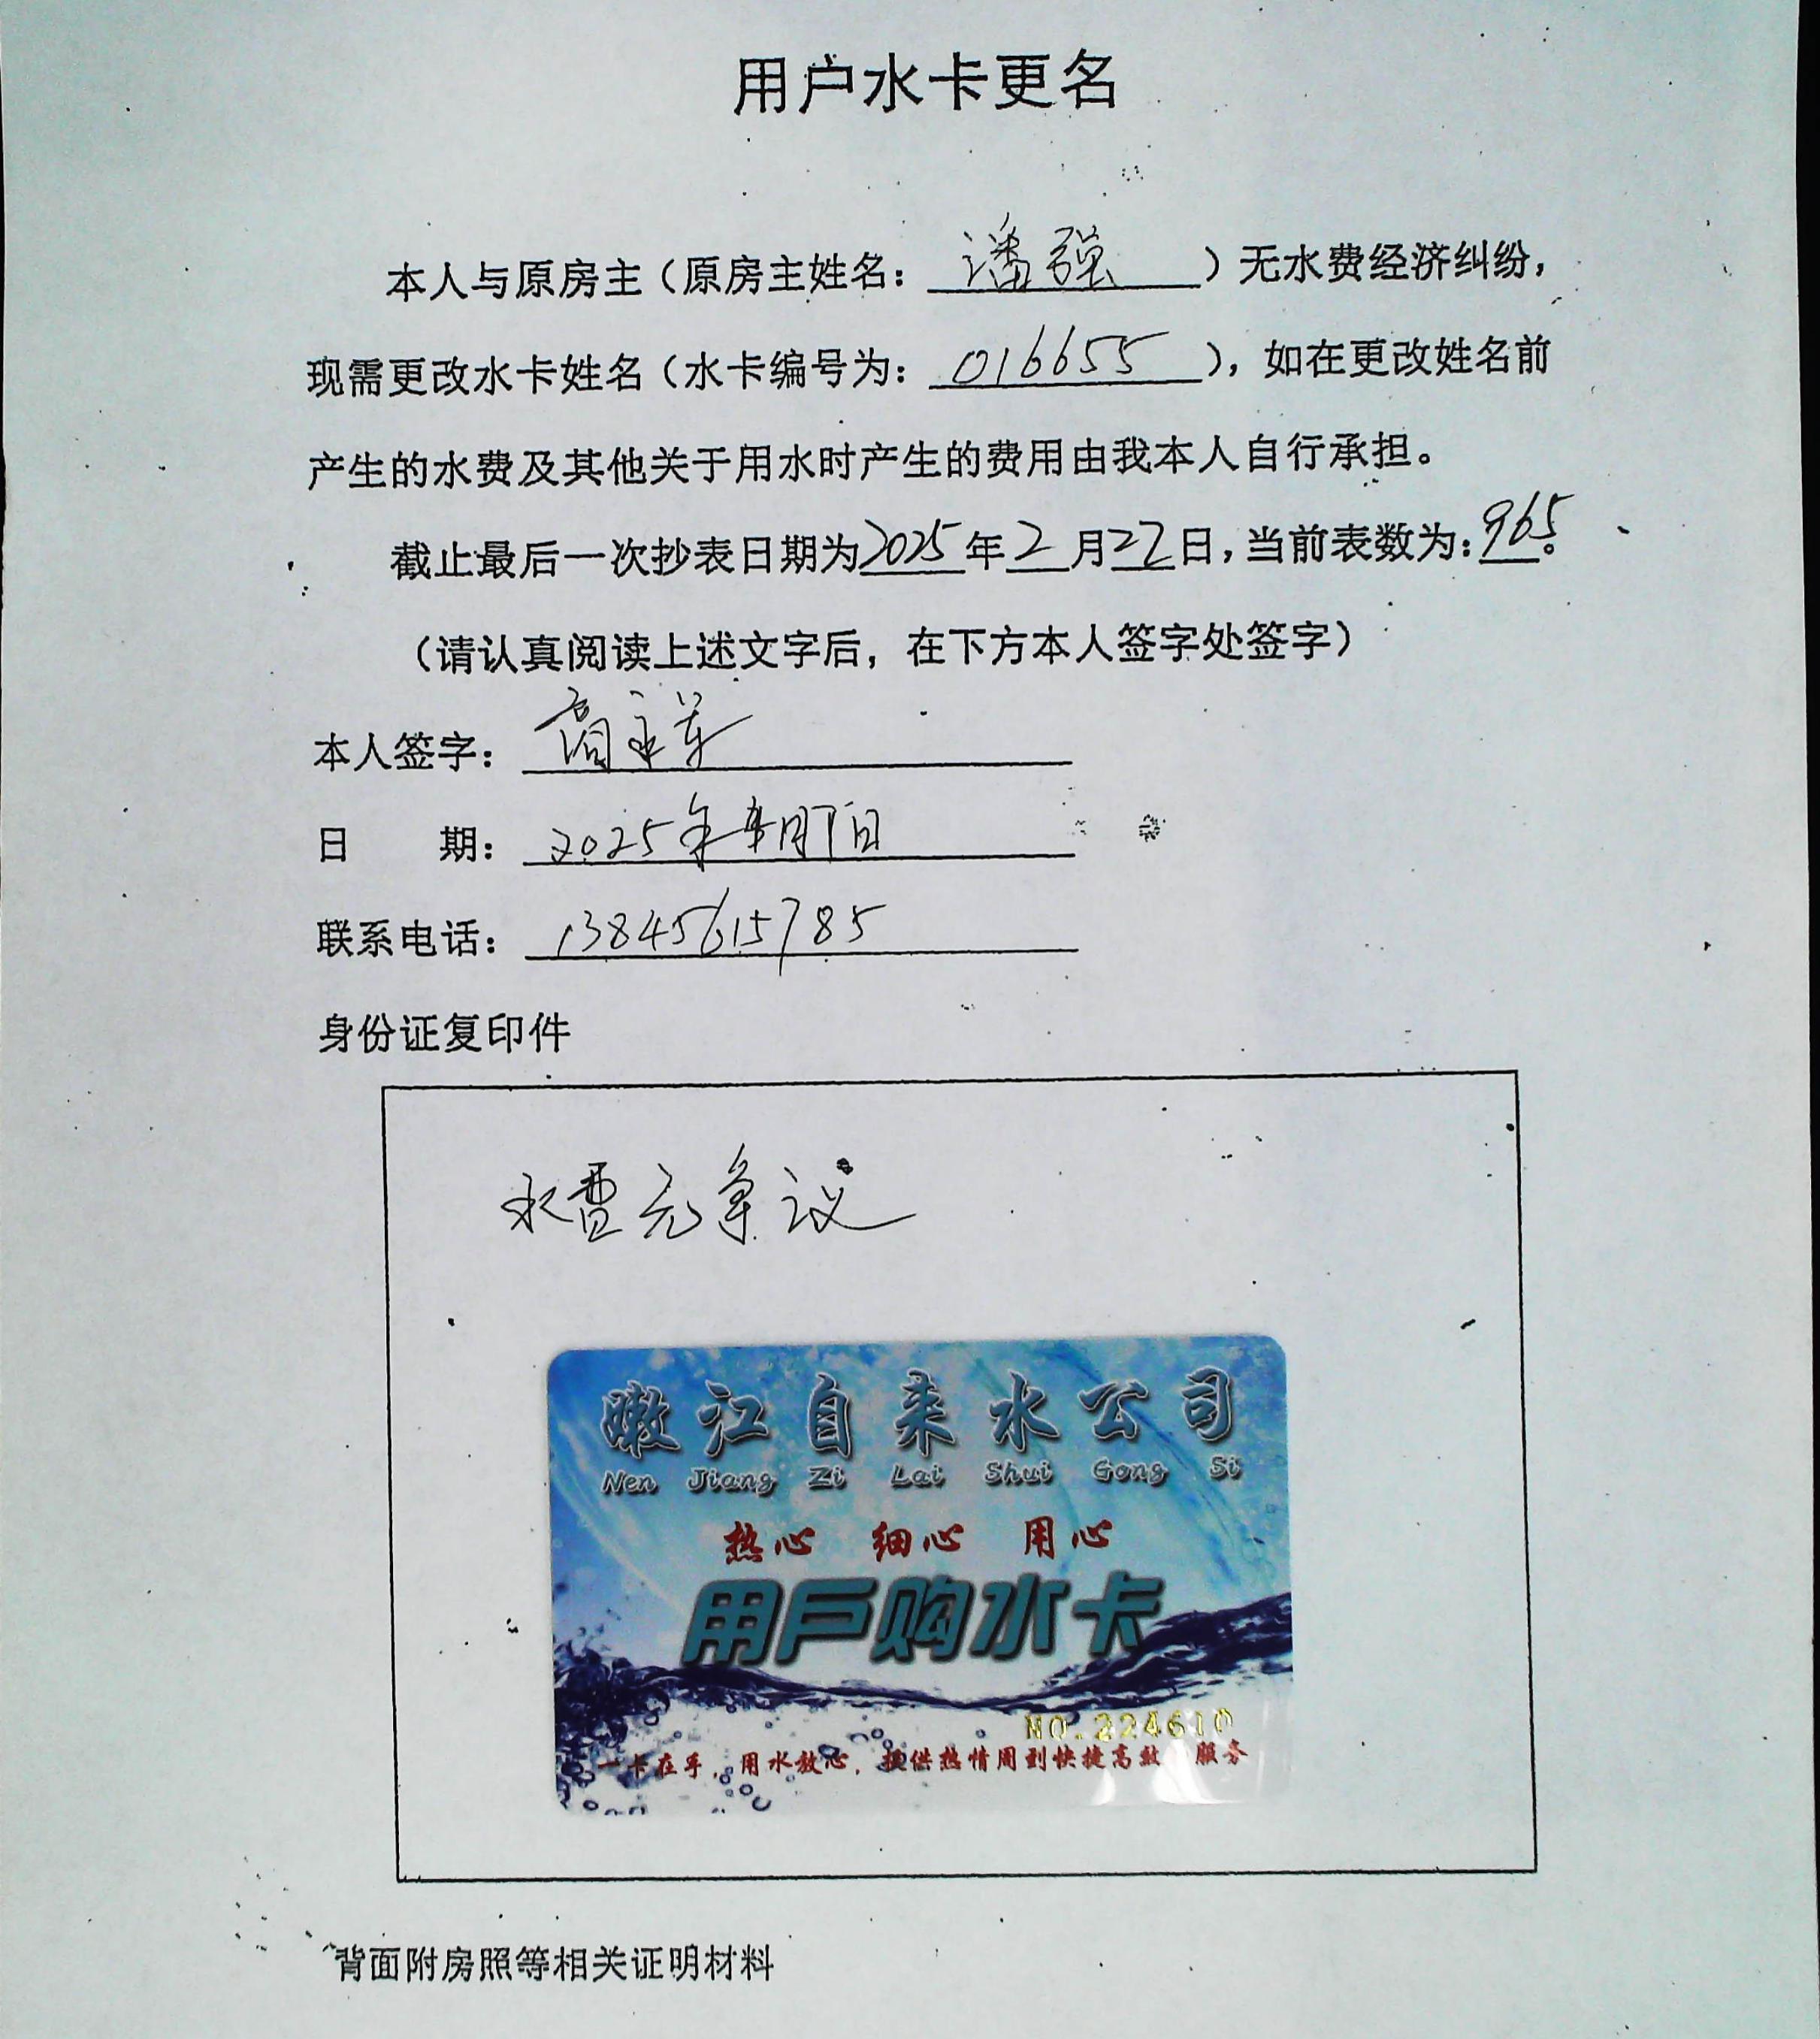 用户水卡更名
本人与原房主（原房主姓名：潘强）无水费经济纠纷，
现需更改水卡姓名（水卡编号为：016655），如在更改姓名前
产生的水费及其他关于用水时产生的费用由我本人自行承担。
截止最后一次抄表日期为2025年2月22日，当前表数为：965。
（请认真阅读上述文字后，在下方本人签字处签字）
本人签字：
日 期：2025年 月 日
联系电话：13845615785
身份证复印件
水费无争议
嫩江自来水公司
Nen Jiang Zi Lai Shui Gong Si
热心 细心 用心
用户购水卡
NO.224610
一卡在手，用水放心，提供热情周到快捷高效 服务
背面附房照等相关证明材料